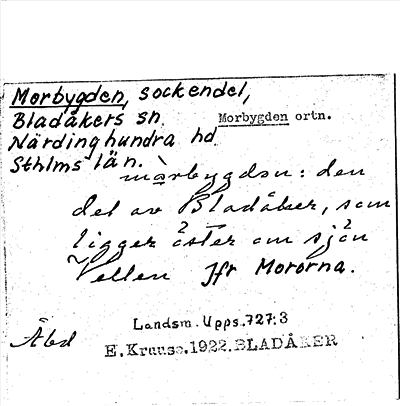 Morbygden, sockendel,
Bladåkers sn. Morbygden ortn.
Närdinghundra hd.
Sthlms län.
mòrbygdən: den
del av Bladåker, som
ligger öster om sjön
Vellen Jfr Mororna.
Landsm. Upps. 727:3
Åbd E.Kruuse.1922.BLADÅKER